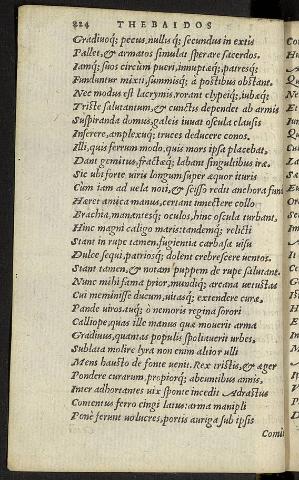 224 THEBAIDOS
Gradiuoq; pecus, nullus q; secundus in extis
Pallet, & armatos simulat sperare sacerdos.
Iamq; suos circùm pueri, innuptæq;, patresq;
Funduntur mixti, summisq; à postibus obstant.
Nec modus est lacrymis, rorant clypeiq;, iubæq;
Triste salutantum, & cunctis dependet ab armis
Suspiranda domus, galeis iuuat oscula clausis
Inserere, amplexuq; truces deducere conos.
Illi, quis ferrum modo, quis mors ipsa placebat,
Dant gemitus, fractæq; labant singultibus iræ.
Sic ubi forte uiris longum super æquor ituris
Cum iam ad uela noti, & scisso redit anchora fundo
Hæret amica manus, certant innectere collo
Brachia, manantesq; oculos, hinc oscula turbant,
Hinc magni caligo maris, tandemq; relicti
Stant in rupe tamen, fugientia carbasa uisu
Dulce sequi, patriosq; dolent crebrescere uentos.
Stant tamen, & notam puppem de rupe salutant.
Nunc mihi fama prior, mundiq; arcana uetustas
Cui meminisse ducum, uitasq; extendere curæ,
Pande uiros, tuq; ò nemoris regina sonori
Calliope, quas ille manus quæ mouerit arma
Gradiuus, quantas populis spoliauerit urbes,
Sublata molire lyra non enim altior ulli
Mens hausto de fonte uenit. Rex tristis, & æger
Pondere curarum, propiorq; abeuntibus annis,
Inter adhortantes uix sponte incedit Adrastus
Contentus ferro cingi latus: arma manipli
Ponè ferunt uolucres, portis auriga sub ipsis
Comit